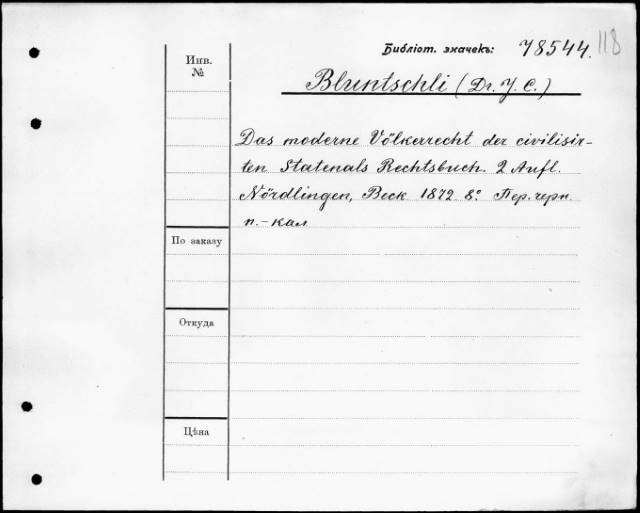 Библіот. значекъ: 78544. 118
Инв. №
Bluntschli (Dr. J. C.)
Das moderne Völkerrecht der civilisir-
ten Statenals Rechtsbuch. 2 Aufl.
Nördlingen, Beck 1872 8º Пер. черн.
п.-кал
По заказу
Откуда
Цѣна